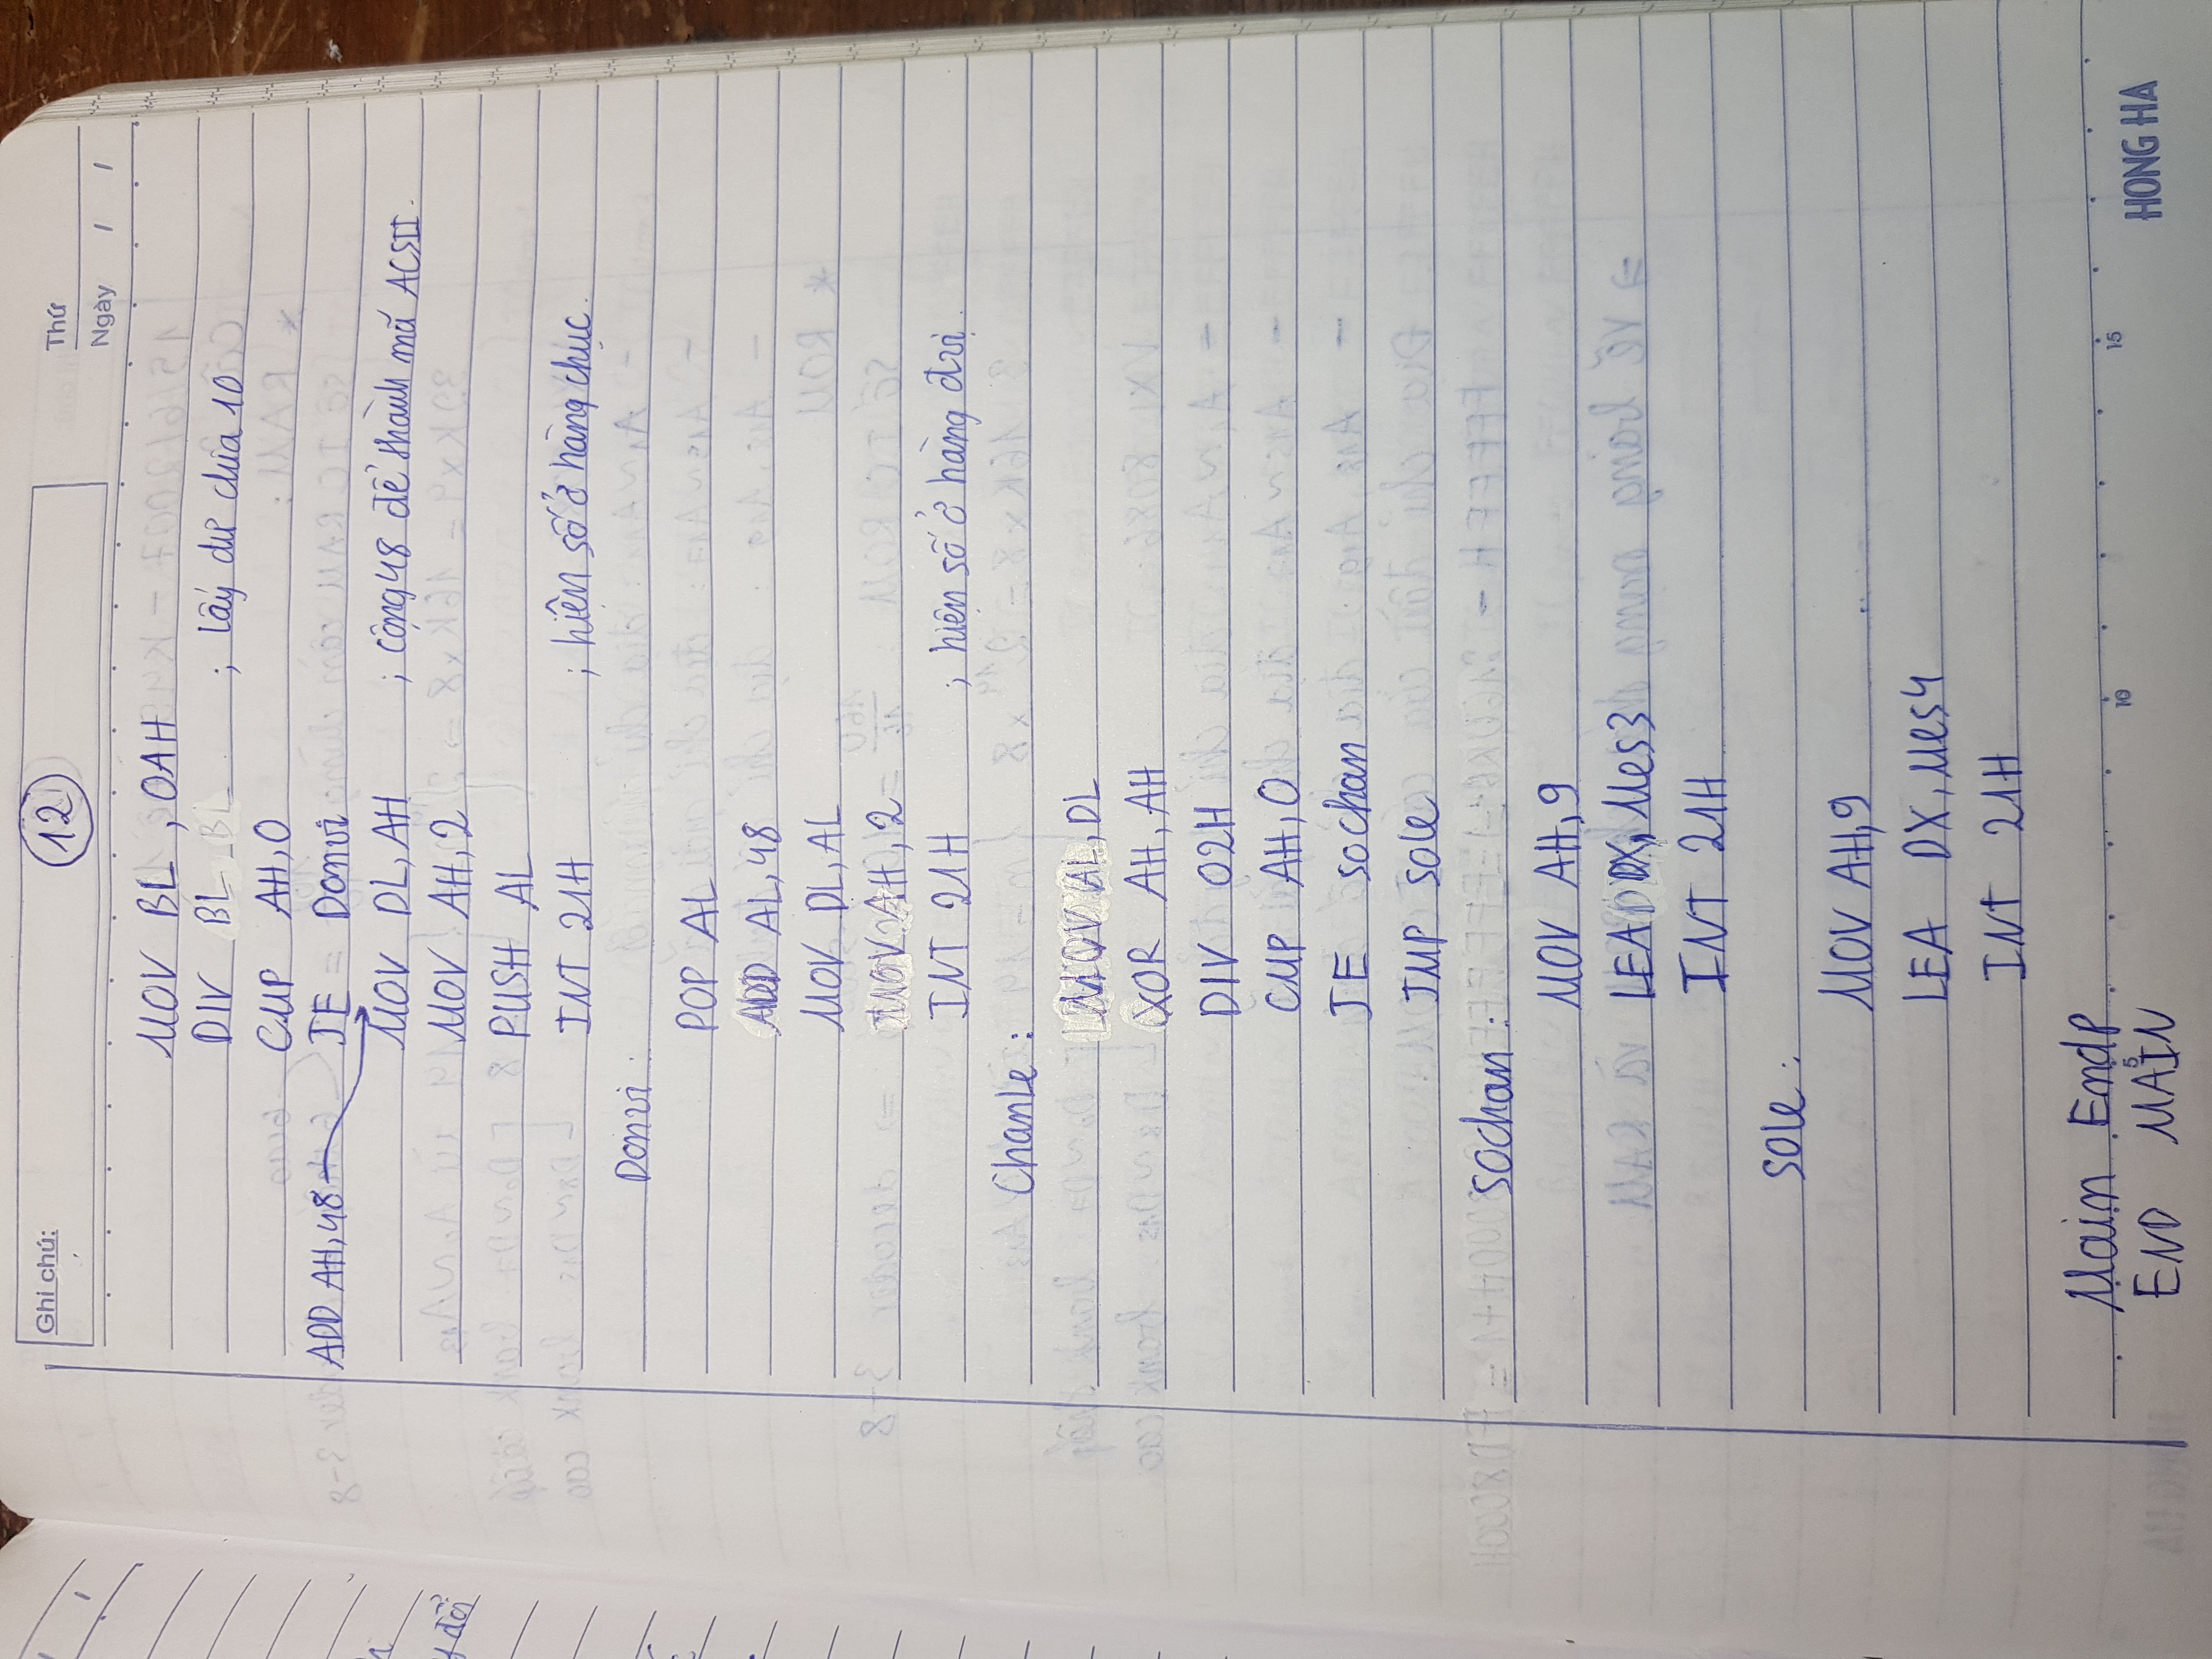 Ghi chú:
12
Thứ
Ngày / /
MOV BL, 0AH
DIV BL ; lấy dư chia 10
CMP AH, 0
JE Donvi
ADD AH, 48
MOV DL, AH ; cộng 48 để thành mã ACSII.
MOV AH, 2
PUSH AL
INT 21H ; hiện số ở hàng chục.
Donvi:
POP AL
ADD AL, 48
MOV DL, AL
MOV AH, 2
INT 21H ; hiện số ở hàng đvị.
ChanLe:
MOV AL, DL
XOR AH, AH
DIV 02H
CMP AH, 0
JE sochan
JMP sole
sochan:
MOV AH, 9
LEA DX, Mes3
INT 21H
sole:
MOV AH, 9
LEA DX, Mes4
INT 21H
Main Endp
END MAIN
5 10 15
HONG HA